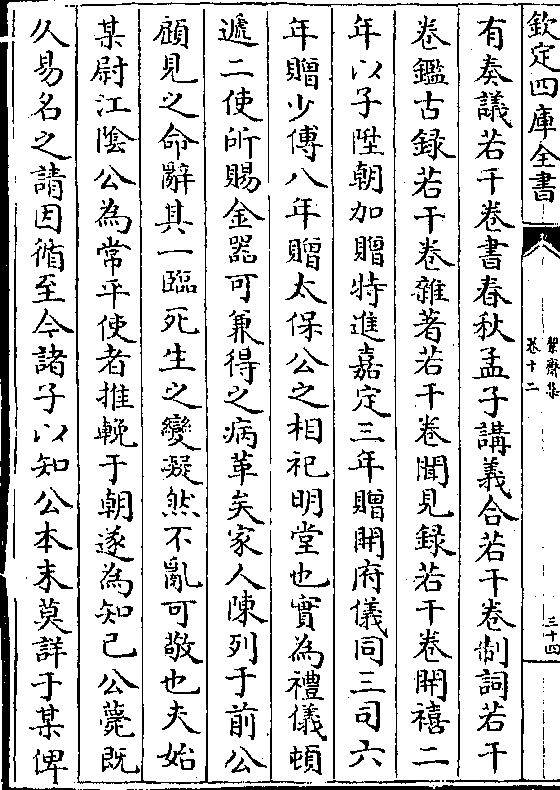 欽定四庫全書
絜齋集
卷十二
三十四
有奏議若干卷書春秋孟子講義合若干卷制詞若干
卷鑑古録若干卷雜著若干卷聞見録若干卷開禧二
年以子陞朝加贈特進嘉定三年贈開府儀同三司六
年贈少傅八年贈太保公之相祀明堂也實為禮儀頓
遞二使所賜金器可兼得之病革矣家人陳列于前公
顧見之命辭其一臨死生之變凝然不亂可敬也夫始
某尉江陰公為常平使者推輓于朝遂為知己公薨既
久易名之請因循至今諸子以知公本末莫詳于某俾